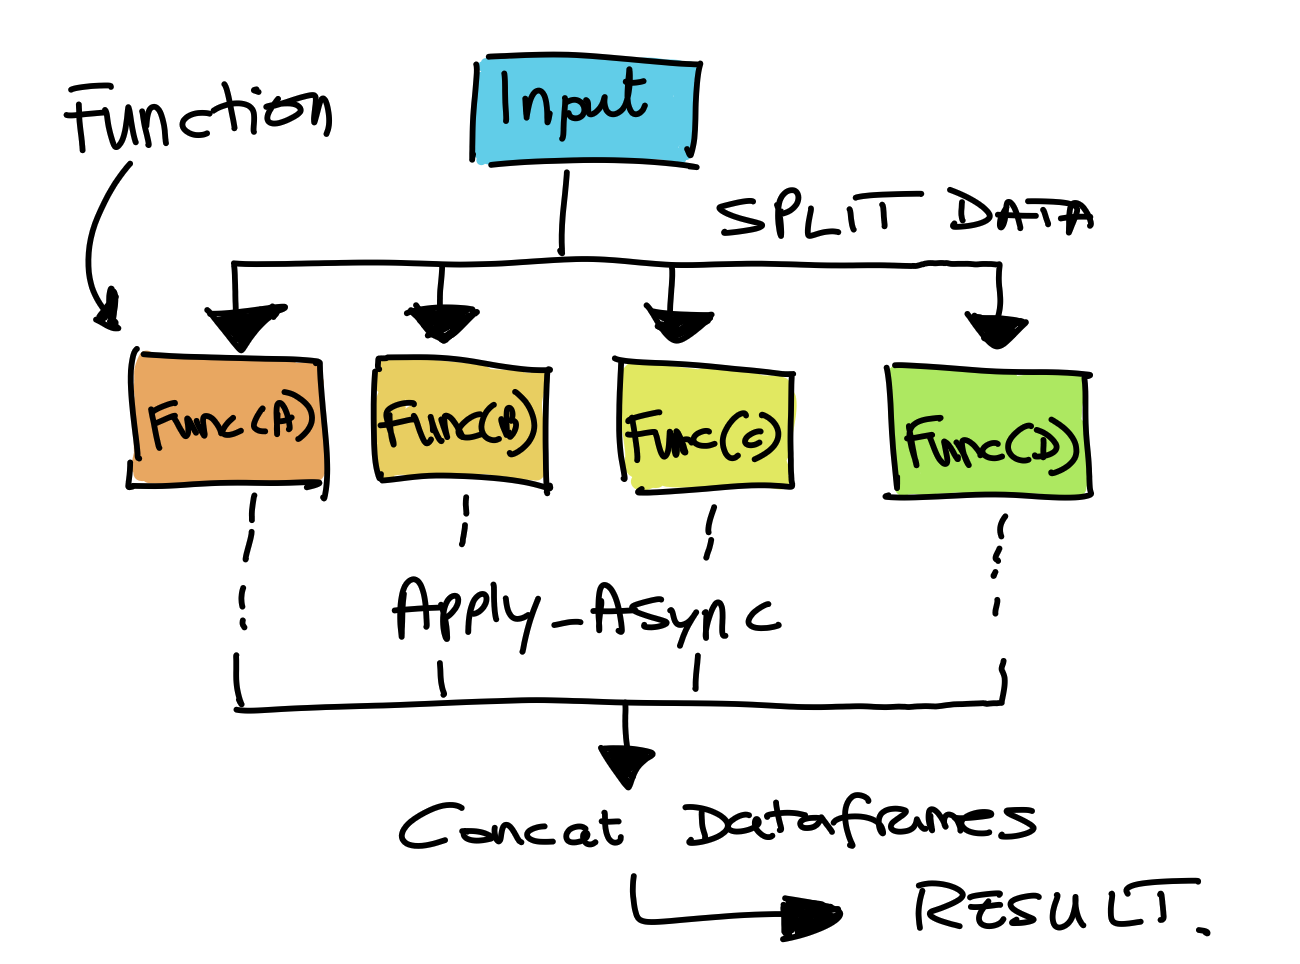 Input
Function
SPLIT DATA
Func(A) Func(B) Func(C) Func(D)
Apply_Async
Concat Dataframes
RESULT.